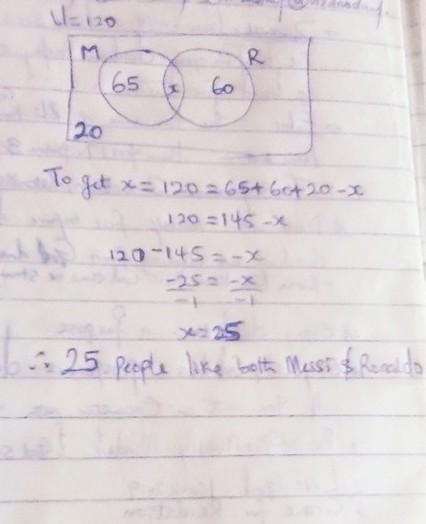 U=120
M R
65 x 60
20
To get x = 120 = 65+60+20-x
120 = 145 -x
120 -145 = -x
-25 = -x
-1 -1
x=25
∴ 25 people like both Messi & Ronaldo